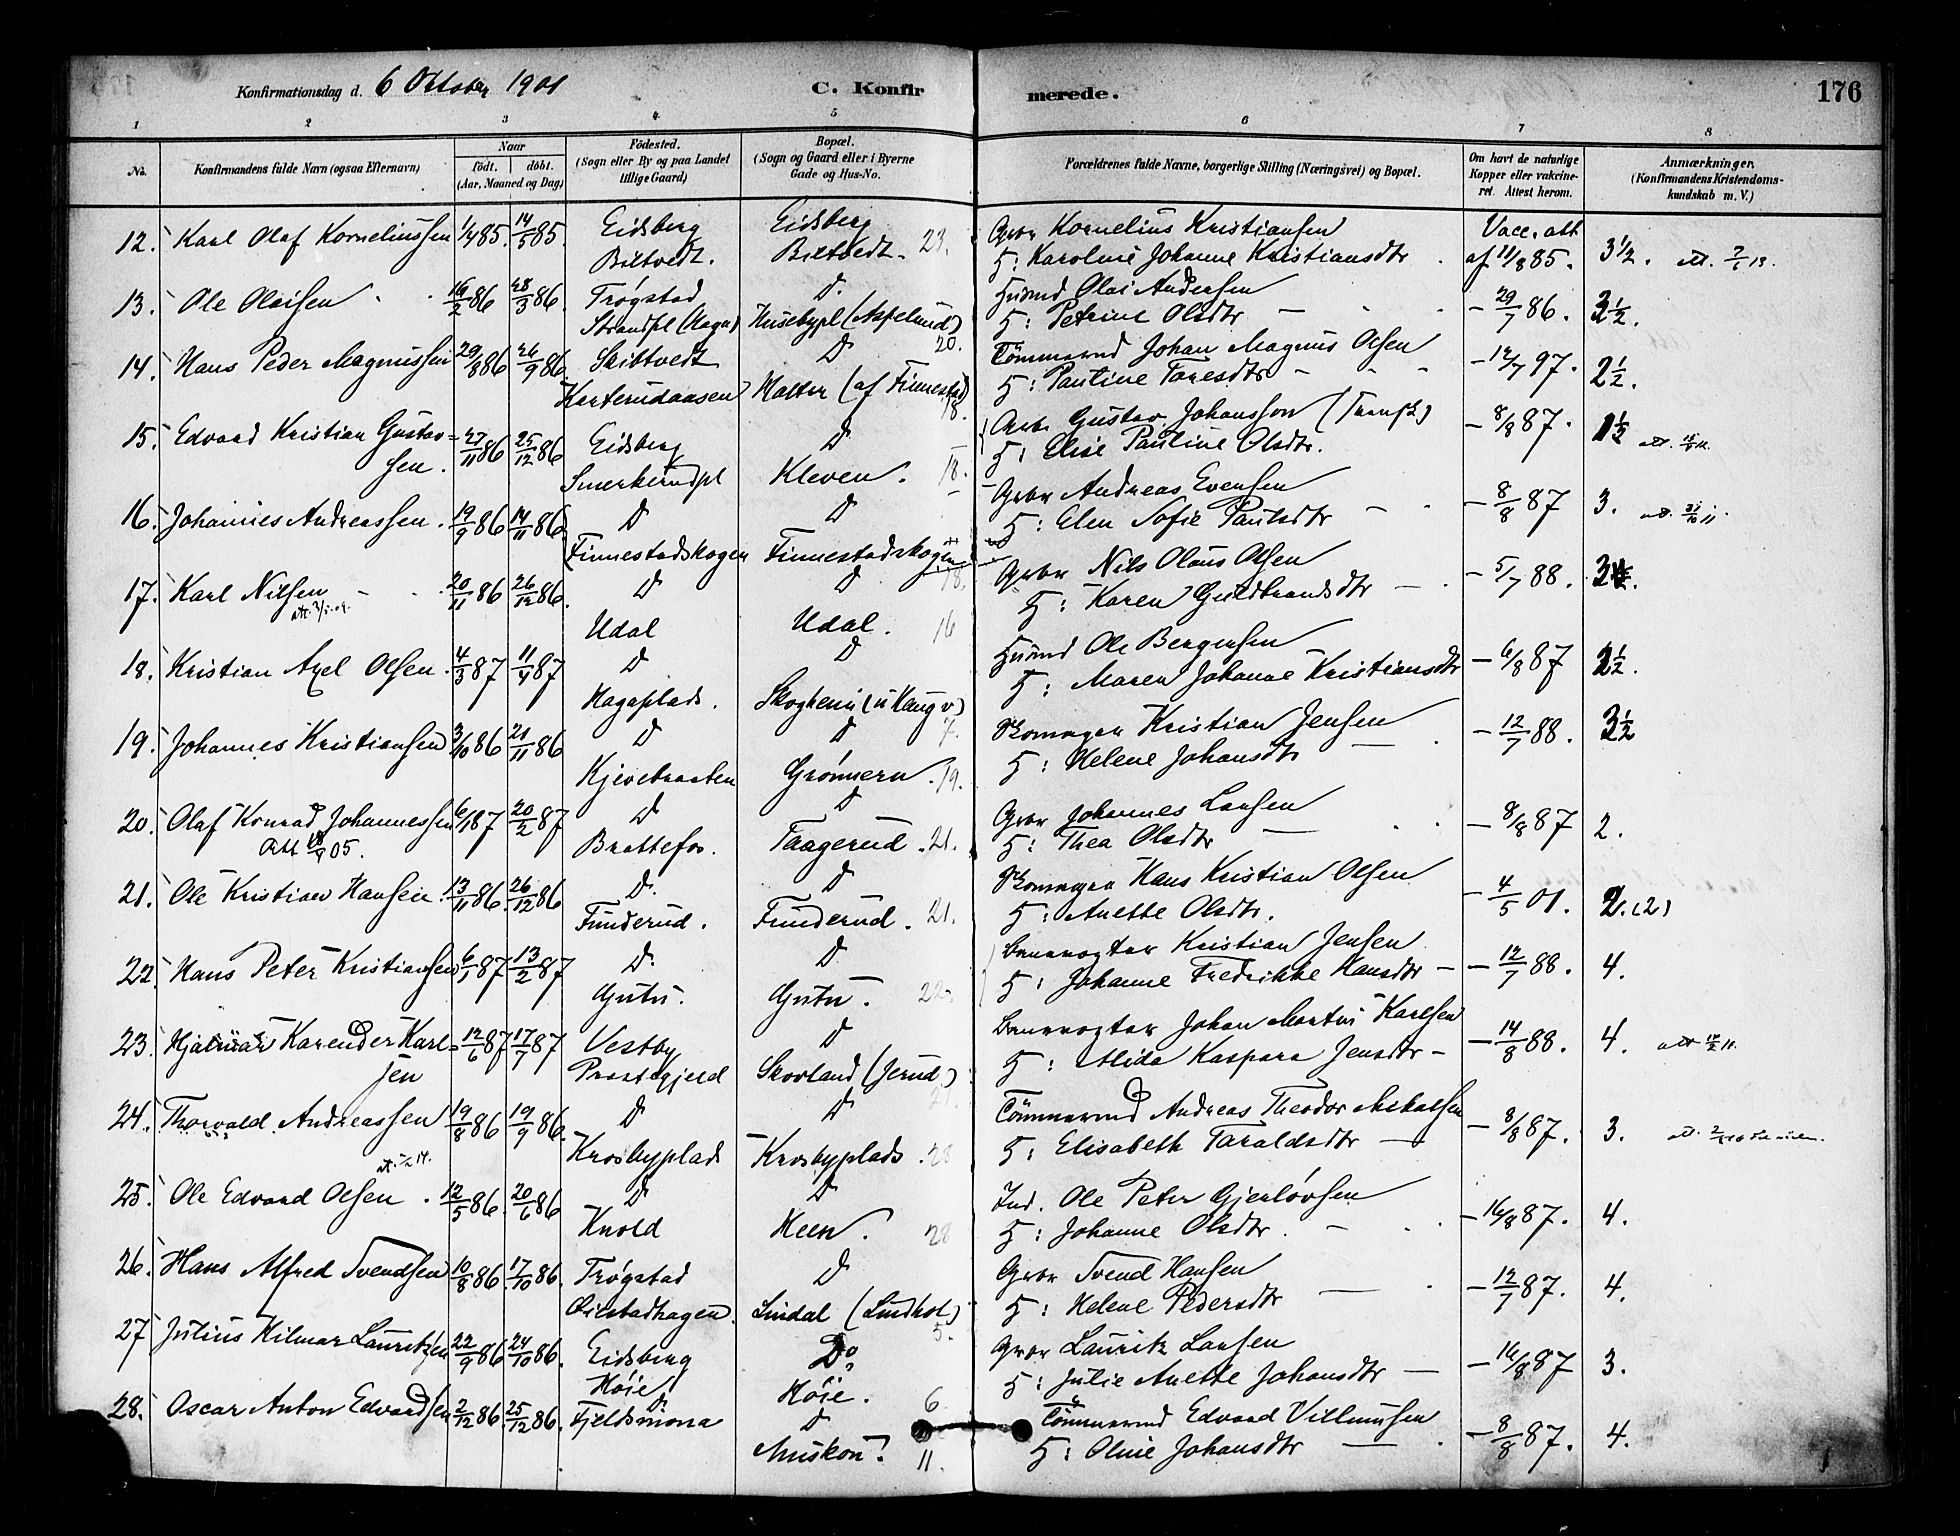 Konfirmationsdag d. 6 Oktober 1901 C. Konfirmerede. 176
1 2 3 4 5 6 7 8
No. Konfirmandens fulde Navn (ogsaa Efternavn) Naar født. døbt. (Aar, Maaned og Dag) Fødested. (Sogn eller By og paa Landet tillige Gaard) Bopæl. (Sogn og Gaard eller i Byerne Gade og Hus-No. Forældrenes fulde Navne, borgerlige Stilling (Næringsvei) og Bopæl. Om havt de naturlige Kopper eller vakcineret. Attest herom. Anmærkninger. (Konfirmandens Kristendomskundskab m. V.)
12. Karl Olaf Korneliussen 1/4 85. 14/5 85. Eidsberg Eidsberg Grbr Kornelius Kristiansen Vacc. att
Biltvedt. Biltvedt. 23. H: Karoline Johanne Kristiansdtr af 11/8 85. 3 1/2.
13. Ole Olaisen 16/2 86 28/3 86. Trøgstad D. Husmd Olai Andersen - 29/7 86. 3 1/2.
Strandpl (Haga) Husebypl (Aspelund) 20. H: Petrine Olsdtr
14. Hans Peder Magnussen 29/8 86 26/9 86. Skibtvedt D Tömmermd Johan Magnus Olsen 97. 2 1/2.
Karterudaasen Molter (af Finnestad) 18. H: Pauline Taresdtr
15. Edvard Kristian Gustav= 27/11 86 25/12 86 Eidsberg D Arb. Gustav Johansson (Transk) - 8/8 87. 1 1/2
sen. Smerkerudpl Kleven. 18. H: Elise Pauline Olsdtr.
16. Johannes Andreassen. 19/9 86 14/11 86 D D Grbr Andreas Evensen - 8/8 87 3.
Finnestadskogen Finnestadskogen 18. H: Elen Sofie Paulsdtr
17. Karl Nilsen 20/11 86 26/12 86. D D Grbr Nils Olaus Olsen - 5/7 88.
Udal Udal. 16 H: Karen Guldbrandsdtr
18. Kristian Axel Olsen. 4/3 87 11/4 87 D D Husmd Ole Bergersen - 6/8 87 2 1/2.
Hagaplads. Skogheim 7. H: Maren Johanne Kristiansdtr
19. Johannes Kristiansen 3/10 86 21/11 86 D D Skomager Kristian Jensen - 12/7 88. 3 1/2
Kjevebraaten Grønnern. 19. H: Helene Johansdtr
20. Olaf Konrad Johannessen 6/1 87 20/2 87 D D Grbr Johannes Larsen - 8/8 87 2.
Brattefos. Taagerud. 21. H: Thea Olsdtr
21. Ole Kristian Hansen. 13/11 86. 26/12 86 D. D Skomager Hans Kristian Olsen - 4/5 01. 2. (2)
Funderud. Funderud. 21. H: Anette Olsdtr.
22. Hans Peter Kristiansen 6/1 87 13/2 87 D. D Banevogter Kristian Jensen - 12/7 88. 4.
Gutu. Gutu. 22. H: Johanne Fredrikke Hansdtr
23. Hjalmar Karender Karl= 12/6 87 17/7 87 Vestby D Banevogter Johan Martin Karlsen - 14/8 88. 4.
sen Prestegjeld Skovland (Jerud) H: Alida Kaspara Jensdtr
24. Thorvald Andreassen 19/8 86 19/9 86. D D Tömmermd Andreas Theodor Mikalsen - 8/8 87. 3.
Krosbyplads Krosbyplads. 28 H: Elisabeth Taraldsdtr
25. Ole Edvard Olsen. 12/5 86. 20/6 86 D D Ind. Ole Peter Gjerløvsen - 16/8 87. 4.
Knold Heen. 28 H: Johanne Olsdtr.
26. Hans Alfred Svendsen 10/8 86. 17/10 86. Trøgstad D Grbr Svend Hansen - 12/7 87. 4.
Oiestadhagen. Lindal (Lindhol) 5. H: Helene Pedersdtr
27 Julius Hilmar Lauritzen 22/9 86. 24/10 86. Eidsberg Do Grbr Lauritz Larsen - 16/8 87 3.
Høie. Høie. 6 H: Julie Anette Johansdtr
28. Oscar Anton Edvardsen 2/12 86. 25/12 86. D. D Tömmermd Edvard Villumsen - 8/8 87. 4.
Fjeldsmona 11. H: Oline Johansdtr